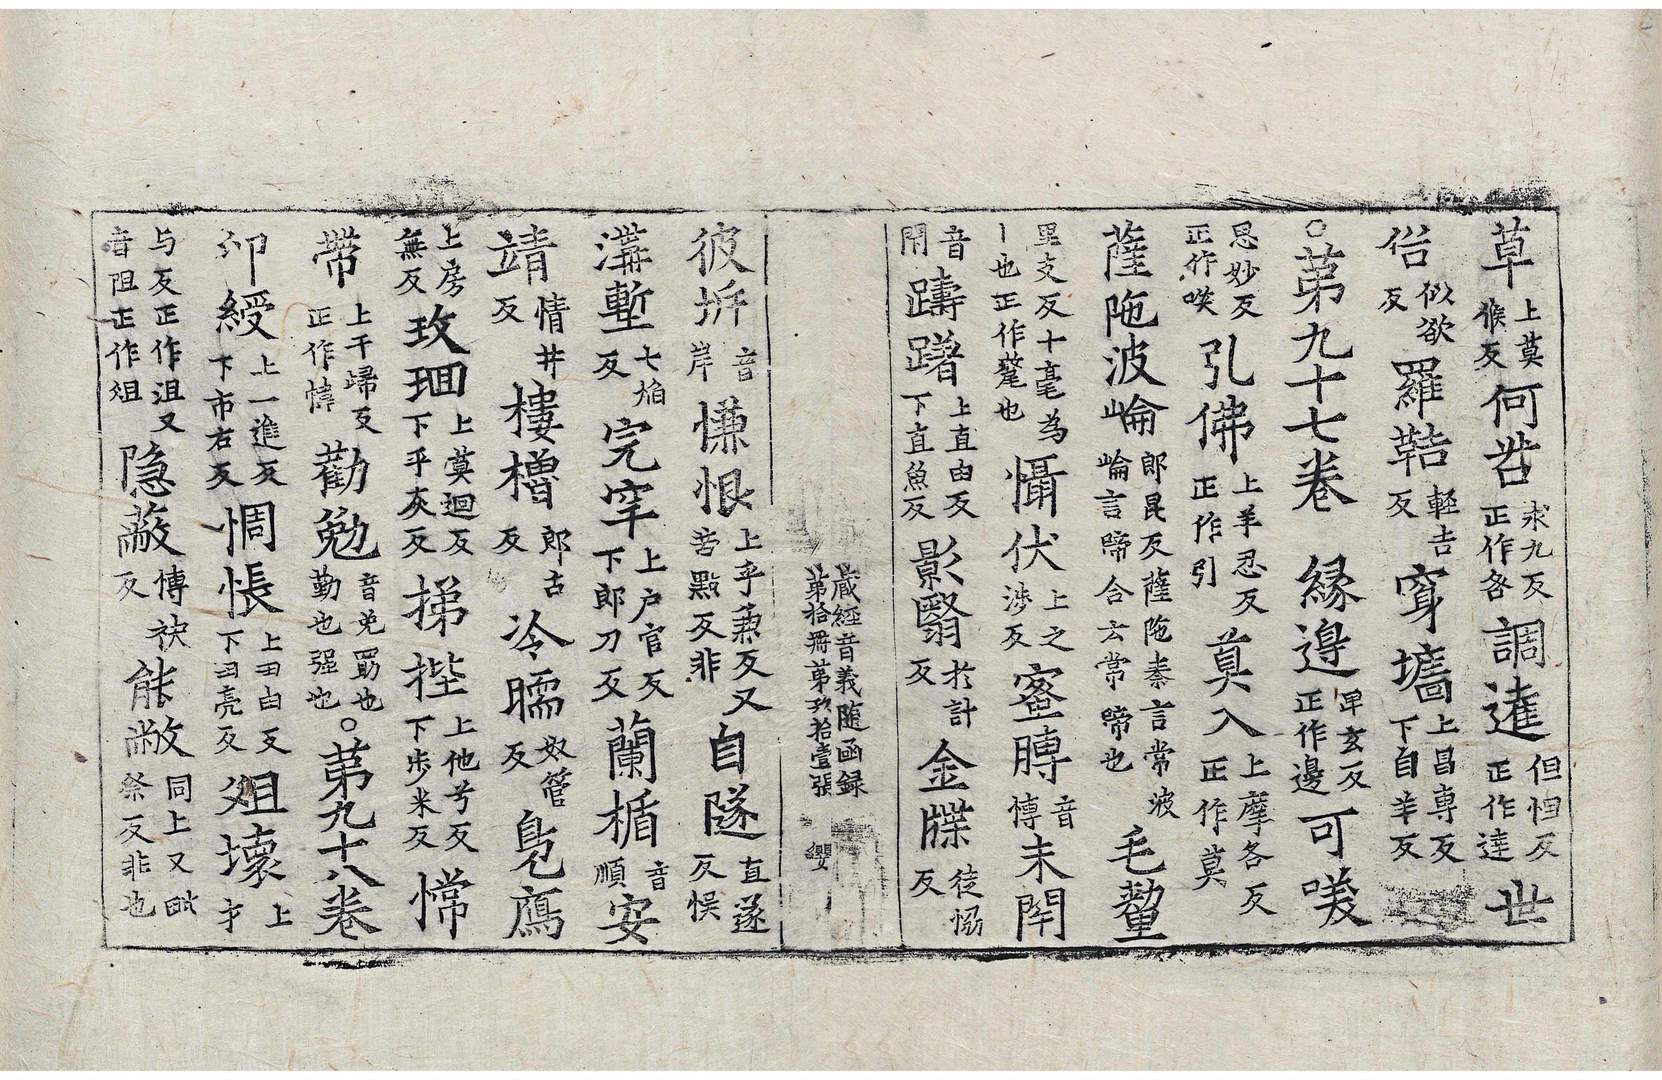 草上莫猴反何咎求九反正作各調達但怛反正作達世
俗似欲反羅鞊軽吉反穿墻上昌専反下自羊反
○苐九十七卷 縁邉卑玄反正作邊可𠵮
思妙反正作唉引佛上羊忍反正作引莫入上摩各反正作莫
薩陁波崘郎昆反薩陁秦言常波崘言啼合云常啼也毛𣯛
里支反十毫为一也正作氂也懾伏上之渉反蜜膞音慱未閈
音閈躊躇上直由反下直魚反影翳於計反金牒徒恊反
藏經音義随函録
苐拾冊苐玖拾壹張 纓
彼坼音岸慊恨上乎兼反又苦㸃反非自隧直遂反悮
溝塹七焰反完牢上户官反下郎刀反蘭楯音順安
靖情井反樓櫓郎古反冷暖奴管反鳬鴈
上房無反玫瑰上莫迴反下乎灰反梯桄上他兮反下步米反憆
帶上千歸反正作幃勸勉音免勖也勤也强也○苐九十八卷
印綬上一進反下市右反惆悵上丑由反下丑亮反爼壊上才
与反正作沮又音阻正作俎隐蔽博袂反能敝同上又毗祭反非也